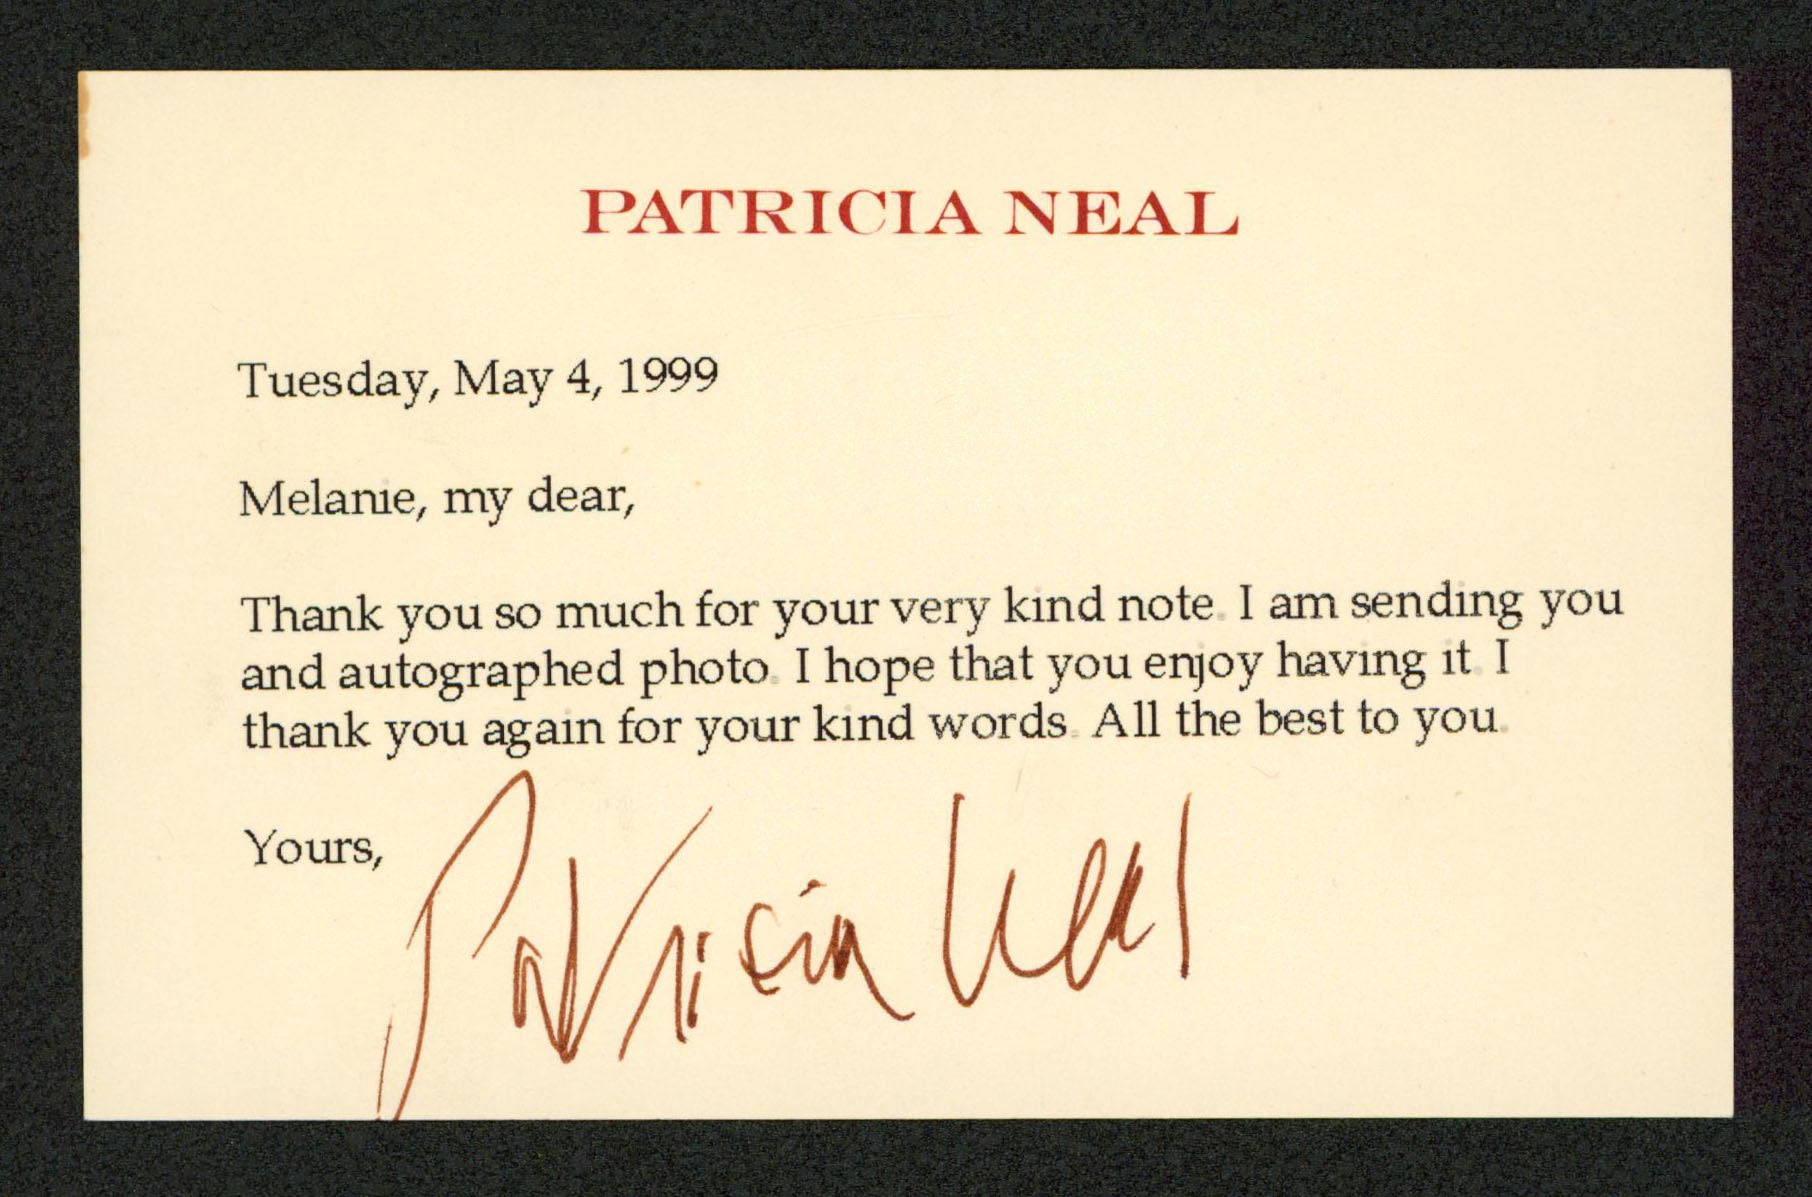 PATRICIA NEAL
Tuesday, May 4, 1999
Melanie, my dear,
Thank you so much for your very kind note. I am sending you
and autographed photo. I hope that you enjoy having it. I
thank you again for your kind words. All the best to you.
Yours,
Patricia Neal